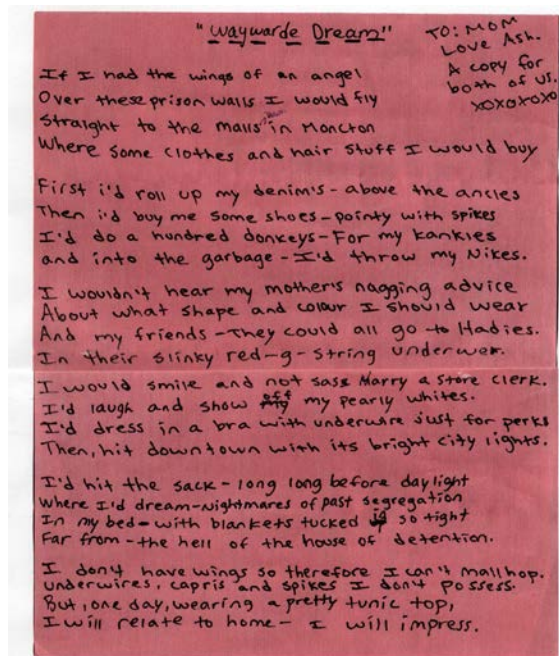 "Waywarde Dream"
TO: MOM
Love Ash.
A copy for
both of us.
xoxoxoxo
If I had the wings of an angel
Over these prison walls I would fly
Straight to the malls in Moncton
Where some clothes and hair stuff I would buy
First i'd roll up my denim's - above the ancles
Then i'd buy me some shoes - pointy with spikes
I'd do a hundred donkeys - For my kankles
and into the garbage - I'd throw my Nikes.
I wouldn't hear my mother's nagging advice
About what shape and colour I should wear
And my friends - They could all go to Hadies.
In their slinky red - g - string underwer.
I would smile and not sass Marry a store clerk.
I'd laugh and show off my pearly whites.
I'd dress in a bra with underwire just for perks
Then, hit downtown with its bright city lights.
I'd hit the sack - long long before daylight
where I'd dream - nightmares of past segregation
In my bed - with blankets tucked so tight
Far from - the hell of the house of detention.
I don't have wings so therefore I can't mallhop.
underwires, capris and spikes I don't possess.
But, one day, wearing a pretty tunic top,
I will relate to home - I will impress.